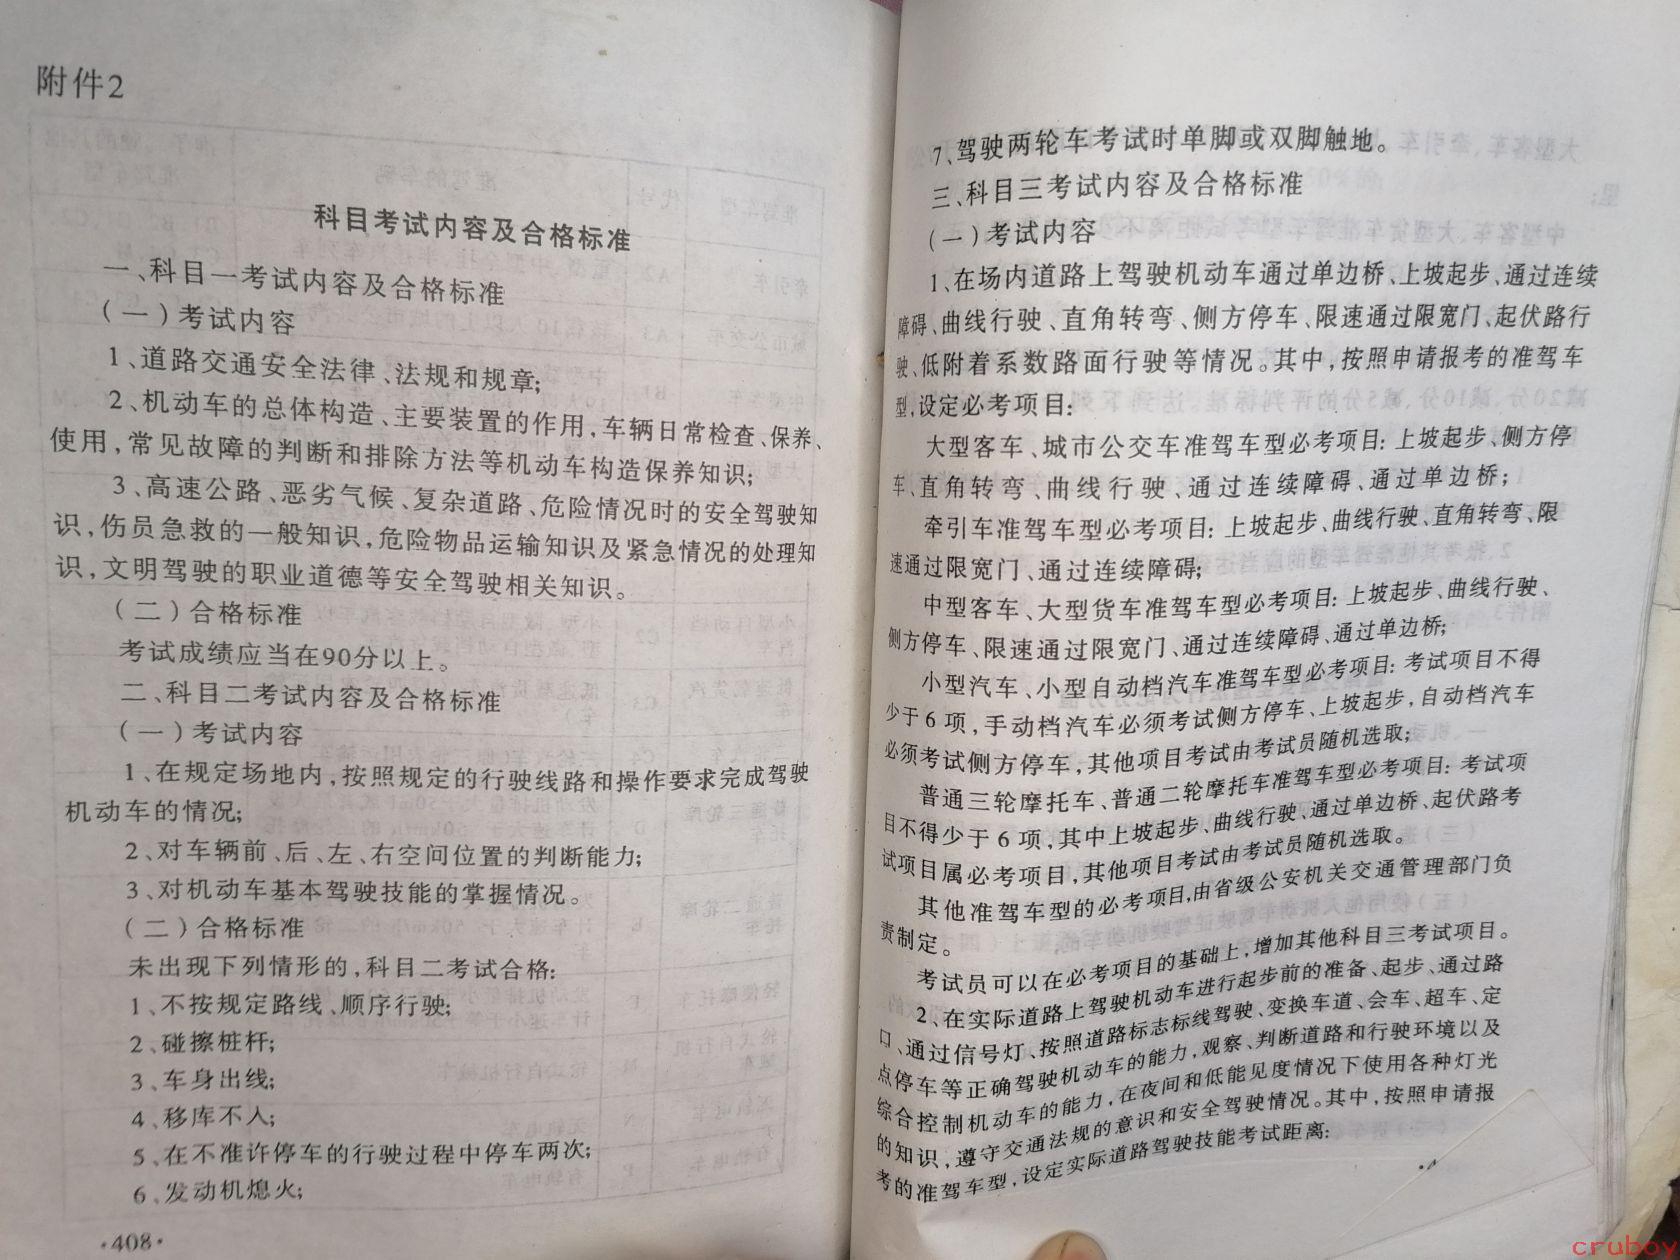 附件2
科目考试内容及合格标准
一、科目一考试内容及合格标准
(一)考试内容
1、道路交通安全法律、法规和规章;
2、机动车的总体构造、主要装置的作用,车辆日常检查、保养、
使用,常见故障的判断和排除方法等机动车构造保养知识;
3、高速公路、恶劣气候、复杂道路、危险情况时的安全驾驶知
识,伤员急救的一般知识,危险物品运输知识及紧急情况的处理知
识,文明驾驶的职业道德等安全驾驶相关知识。
(二)合格标准
考试成绩应当在90分以上。
二、科目二考试内容及合格标准
(一)考试内容
1、在规定场地内,按照规定的行驶线路和操作要求完成驾驶
机动车的情况;
2、对车辆前、后、左、右空间位置的判断能力;
3、对机动车基本驾驶技能的掌握情况。
(二)合格标准
未出现下列情形的,科目二考试合格:
1、不按规定路线、顺序行驶;
2、碰擦桩杆;
3、车身出线;
4、移库不入;
5、在不准许停车的行驶过程中停车两次;
6、发动机熄火;
·408·
7、驾驶两轮车考试时单脚或双脚触地。
三、科目三考试内容及合格标准
(一)考试内容
1、在场内道路上驾驶机动车通过单边桥、上坡起步、通过连续
障碍、曲线行驶、直角转弯、侧方停车、限速通过限宽门、起伏路行
驶、低附着系数路面行驶等情况。其中,按照申请报考的准驾车
型,设定必考项目:
大型客车、城市公交车准驾车型必考项目: 上坡起步、侧方停
车、直角转弯、曲线行驶、通过连续障碍、通过单边桥;
牵引车准驾车型必考项目: 上坡起步、曲线行驶、直角转弯、限
速通过限宽门、通过连续障碍;
中型客车、大型货车准驾车型必考项目: 上坡起步、曲线行驶、
侧方停车、限速通过限宽门、通过连续障碍、通过单边桥;
小型汽车、小型自动档汽车准驾车型必考项目: 考试项目不得
少于6项,手动档汽车必须考试侧方停车、上坡起步,自动档汽车
必须考试侧方停车,其他项目考试由考试员随机选取;
普通三轮摩托车、普通二轮摩托车准驾车型必考项目: 考试项
目不得少于6项,其中上坡起步、曲线行驶、通过单边桥、起伏路考
试项目属必考项目,其他项目考试由考试员随机选取。
其他准驾车型的必考项目,由省级公安机关交通管理部门负
责制定。
考试员可以在必考项目的基础上,增加其他科目三考试项目。
2、在实际道路上驾驶机动车进行起步前的准备、起步、通过路
口、通过信号灯、按照道路标志标线驾驶、变换车道、会车、超车、定
点停车等正确驾驶机动车的能力,观察、判断道路和行驶环境以及
综合控制机动车的能力,在夜间和低能见度情况下使用各种灯光
的知识,遵守交通法规的意识和安全驾驶情况。其中,按照申请报
考的准驾车型,设定实际道路驾驶技能考试距离:
cruboy